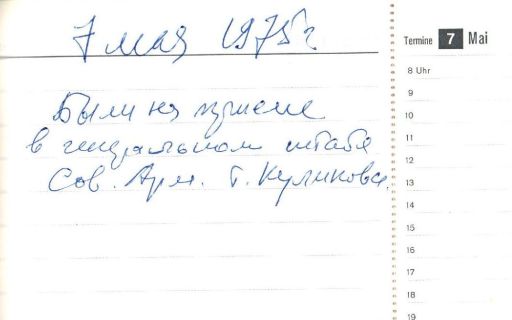 7 мая 1975 г
Были на приеме
в генеральном штабе
Сов. Арм. т. Куликова.
Termine 7 Mai
8 Uhr
9
10
11
12
13
14
15
16
17
18
19